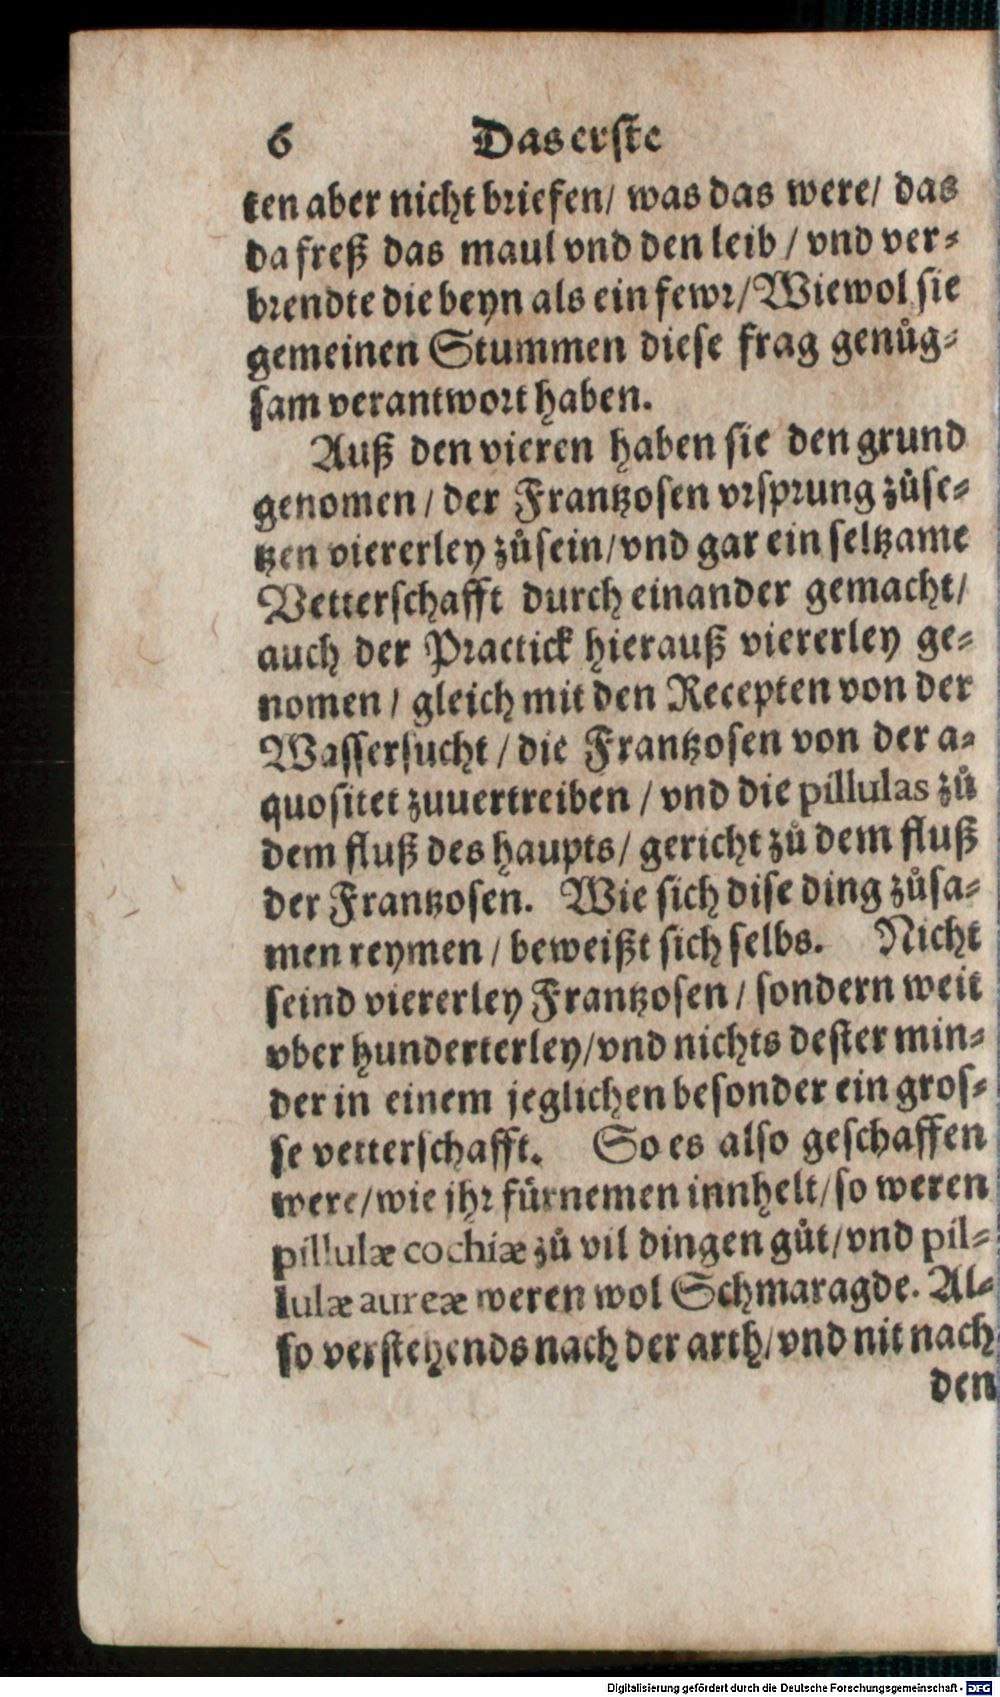 6 Das erste
ten aber nicht briefen/ was das were/ das
da freß das maul vnd den leib / vnd ver-
brendte die beyn als ein fewr/ Wiewol sie
gemeinen Stummen diese frag genuͦg-
sam verantwort haben.
Auß den vieren haben sie den grund
genomen / der Frantzosen vrsprung zuͦse-
tzen viererley zuͦsein/vnd gar ein seltzame
Vetterschafft durch einander gemacht/
auch der Practick hierauß viererley ge-
nomen / gleich mit den Recepten von der
Wassersucht / die Frantzosen von der a-
quositet zuuertreiben / vnd die pillulas zuͦ
dem fluß des haupts/ gericht zuͦ dem fluß
der Frantzosen. Wie sich dise ding zuͦsa-
men reymen / beweißt sich selbs. Nicht
seind viererley Frantzosen / sondern weit
vber hunderterley/vnd nichts dester min-
der in einem jeglichen besonder ein gros-
se vetterschafft. So es also geschaffen
were/wie jhr fürnemen innhelt/so weren
pillulæ cochiæ zuͦ vil dingen guͦt/vnd pil-
lulæ aureæ weren wol Schmaragde. Al-
so verstehends nach der arth/vnd nit nach
den
Digitalisierung gefördert durch die Deutsche Forschungsgemeinschaft - DFG